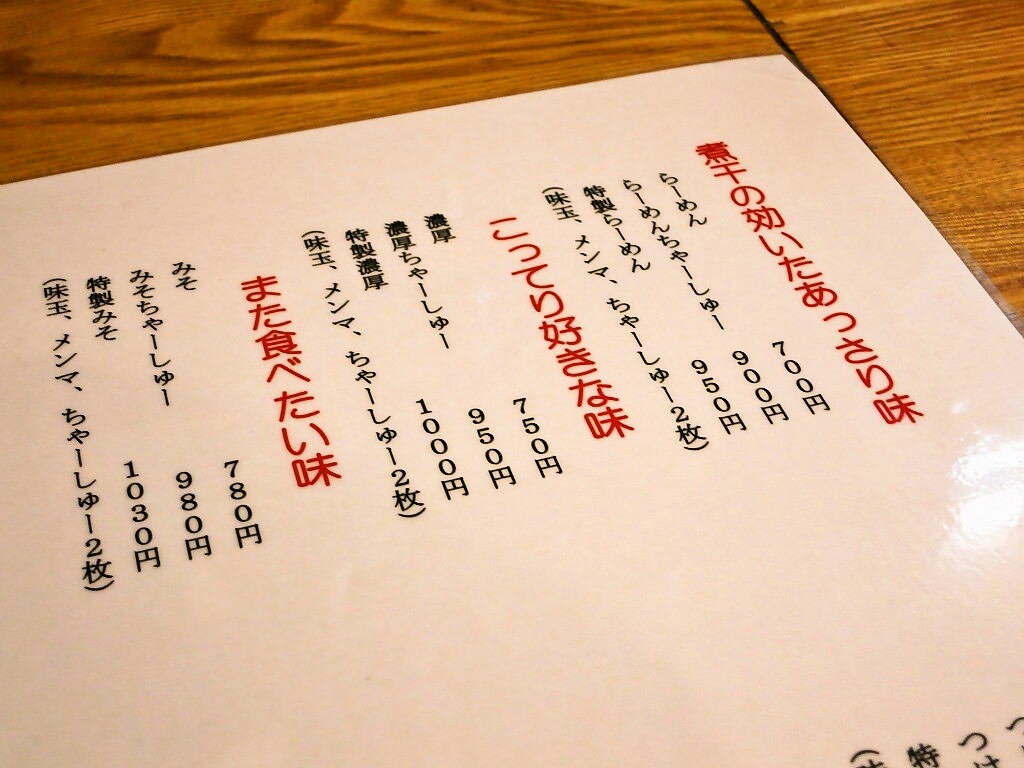 煮干の効いたあっさり味
らーめん 700円
らーめんちゃーしゅー 900円
特製らーめん 950円
(味玉、メンマ、ちゃーしゅー2枚)
こってり好きな味
濃厚 750円
濃厚ちゃーしゅー 950円
特製濃厚 1000円
(味玉、メンマ、ちゃーしゅー2枚)
また食べたい味
みそ 780円
みそちゃーしゅー 980円
特製みそ 1030円
(味玉、メンマ、ちゃーしゅー2枚)
つけ
特